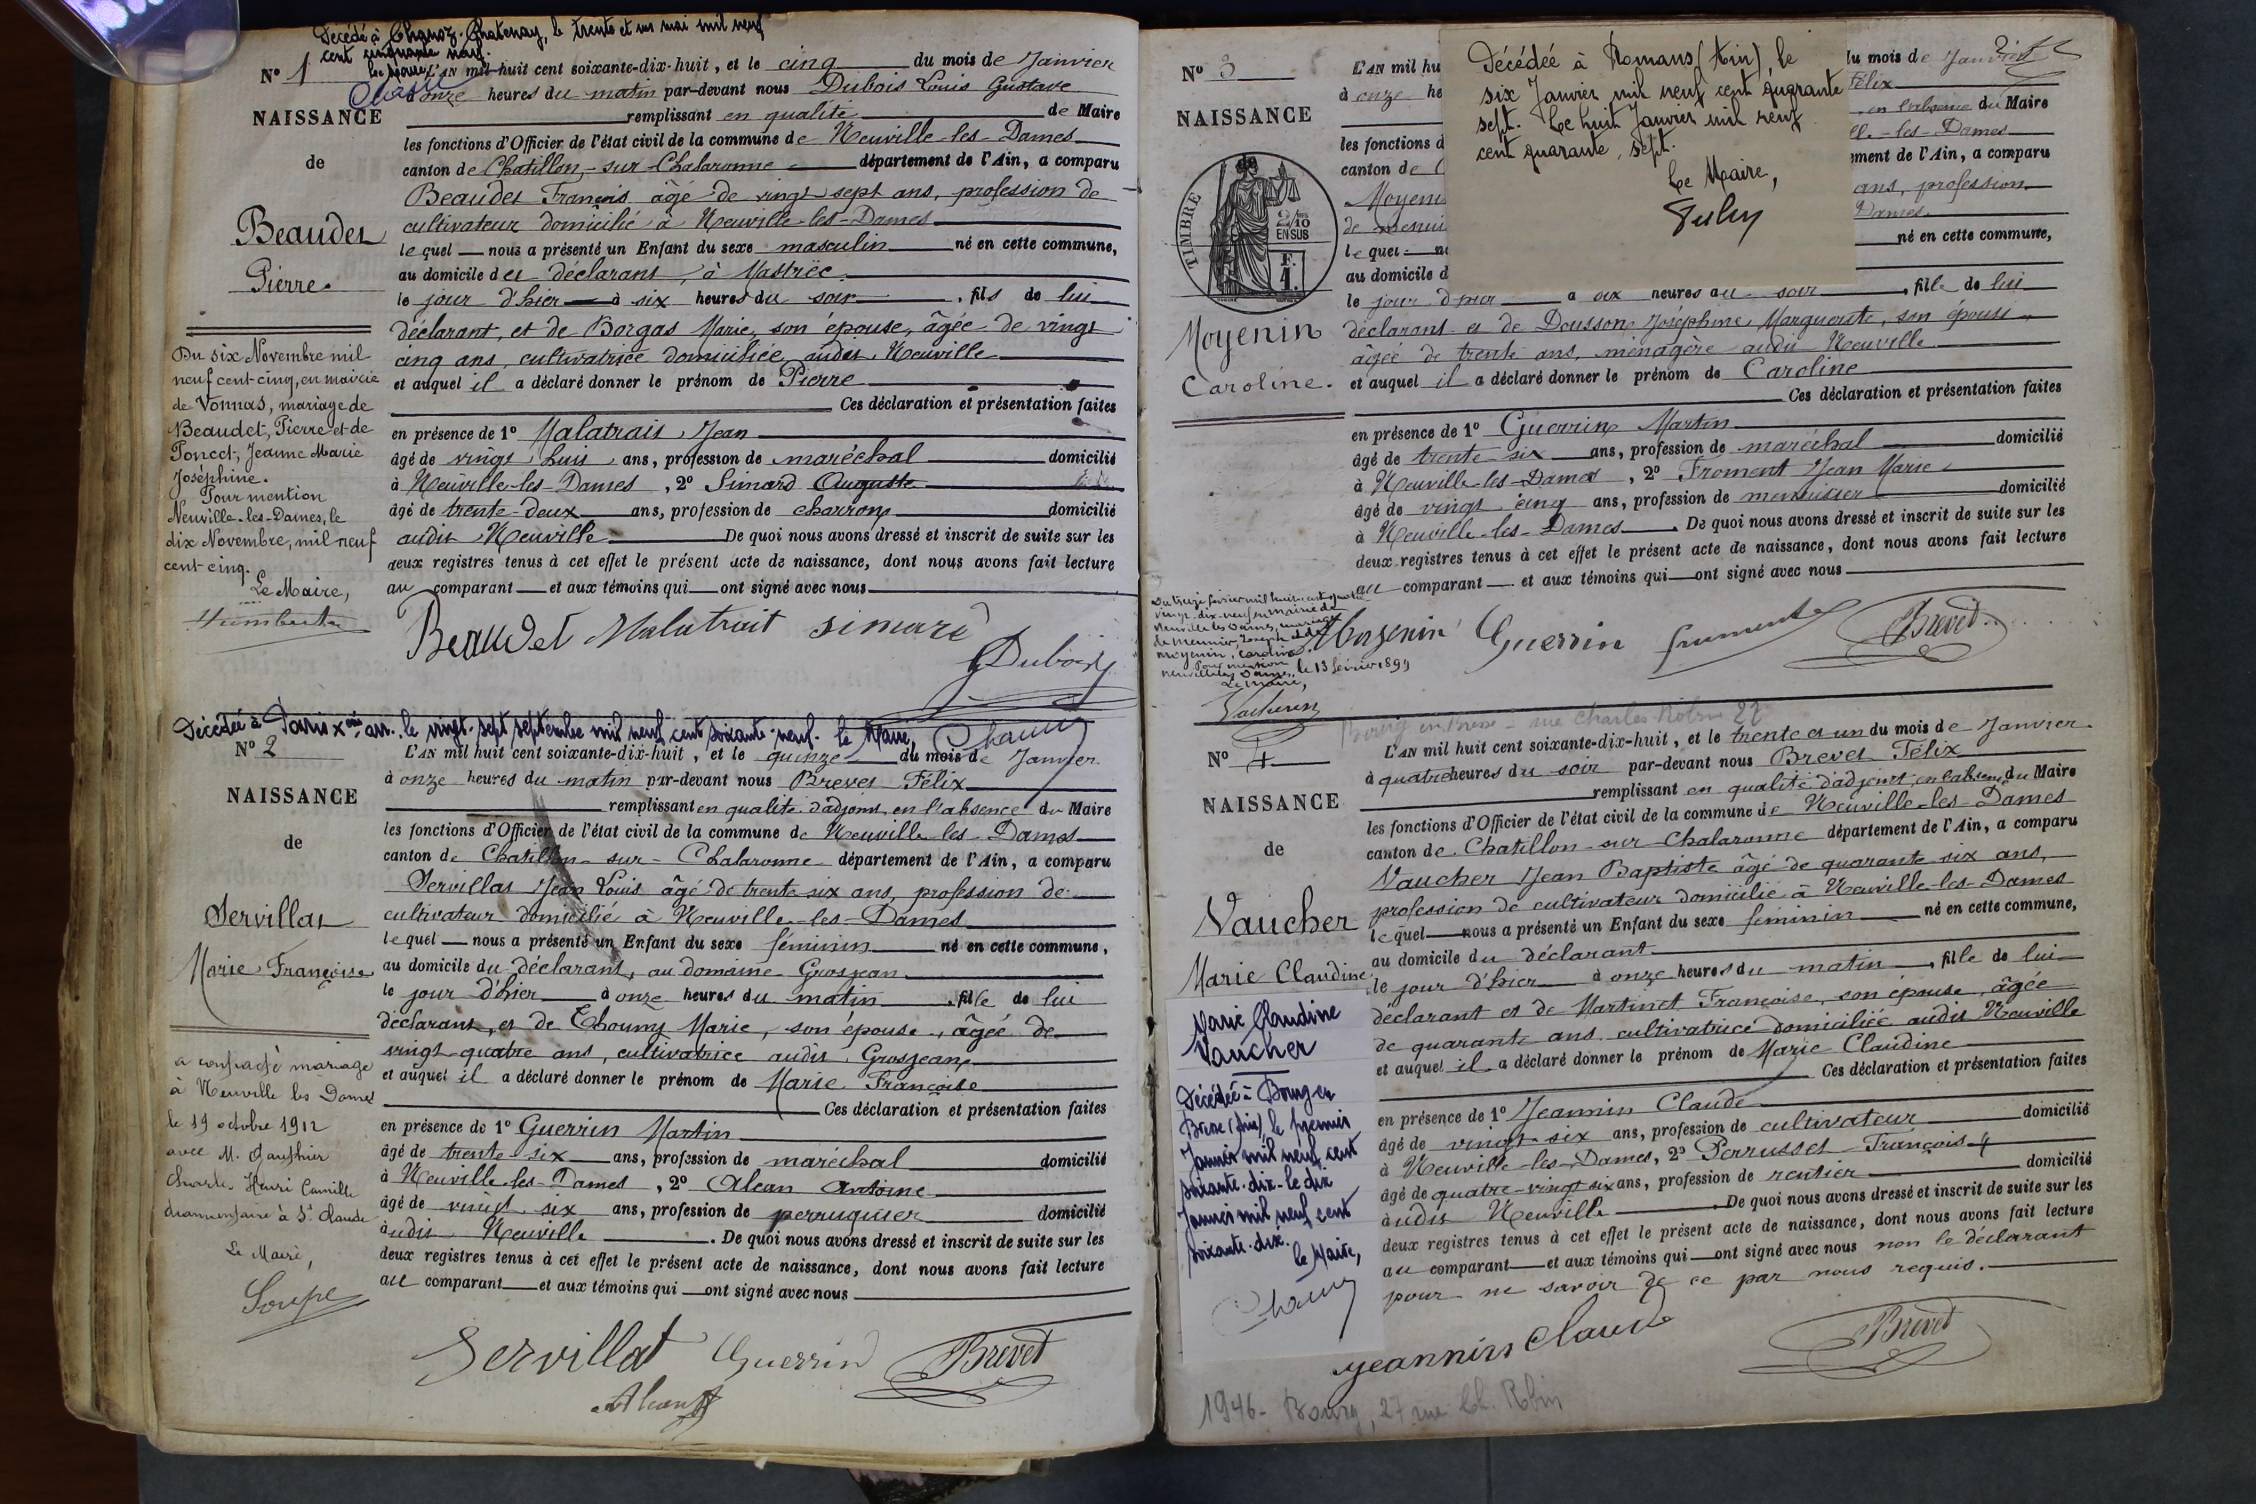 Décédé à Chanoz-Chatenay, le trente et un mai mil neuf
cent cinquante neuf.
Le Maire,
N° 1
NAISSANCE
de
Beaudet
Pierre.
L'AN mil huit cent soixante-dix-huit, et le cinq du mois de Janvier
à onze heures du matin par-devant nous Dubois Louis Gustave
remplissant en qualité de Maire
les fonctions d'Officier de l'état civil de la commune de Neuville-les-Dames
canton de Chatillon-sur-Chalaronne département de l'Ain, a comparu
Beaudet François âgé de vingt sept ans, profession de
cultivateur domicilié à Neuville-les-Dames
lequel nous a présenté un Enfant du sexe masculin né en cette commune,
au domicile des déclarant, à
le jour d'hier à six heures du soir, fils de lui
déclarant, et de Borgas Marie, son épouse, âgée de vingt
cinq ans, cultivatrice domiciliée audit Neuville
et auquel il a déclaré donner le prénom de Pierre
Ces déclaration et présentation faites
en présence de 1° Malatrait Jean
âgé de vingt huit ans, profession de maréchal domicilié
à Neuville-les-Dames, 2° Simard Auguste
âgé de trente-deux ans, profession de charron domicilié
audit Neuville De quoi nous avons dressé et inscrit de suite sur les
deux registres tenus à cet effet le présent acte de naissance, dont nous avons fait lecture
au comparant et aux témoins qui ont signé avec nous
Beaudet Malatrait simard
Dubois
Du six Novembre mil
neuf cent-cinq, en mairie
de Vonnas, mariage de
Beaudet, Pierre et de
Poncet, Jeanne Marie
Joséphine.
Pour mention
Neuville-les-Dames, le
dix Novembre, mil neuf
cent-cinq.
Le Maire,
Humbert
Décédée à Paris Xème arr. le vingt-sept septembre mil neuf cent soixante-neuf. le Maire,
N° 2
NAISSANCE
de
Servillat
Marie Françoise
L'AN mil huit cent soixante-dix-huit, et le quinze du mois de Janvier
à onze heures du matin par-devant nous Brevet Félix
remplissant en qualité d'adjoint, en l'absence du Maire
les fonctions d'Officier de l'état civil de la commune de Neuville-les-Dames
canton de Chatillon-sur-Chalaronne département de l'Ain, a comparu
Servillat Jean Louis âgé de trente six ans, profession de
cultivateur domicilié à Neuville-les-Dames
lequel nous a présenté un Enfant du sexe féminin né en cette commune,
au domicile du déclarant, au domaine Grosjean
le jour d'hier à onze heures du matin, fille de lui
déclarant, et de Thoumy Marie, son épouse, âgée de
vingt-quatre ans, cultivatrice audit Grosjean
et auquel il a déclaré donner le prénom de Marie Françoise
Ces déclaration et présentation faites
en présence de 1° Guerrin Martin
âgé de trente-six ans, profession de maréchal domicilié
à Neuville-les-Dames, 2° Alcan Antoine
âgé de vingt six ans, profession de perruquier domicilié
audit Neuville. De quoi nous avons dressé et inscrit de suite sur les
deux registres tenus à cet effet le présent acte de naissance, dont nous avons fait lecture
au comparant et aux témoins qui ont signé avec nous
Servillat Guerrin Brevet
a contracté mariage
à Neuville les Dames
le 19 octobre 1912
avec M. Gauthier
Charles Henri Camille
à St Claude
Le Maire,
Soupe
N° 3
NAISSANCE
TIMBRE
2/10 EN SUS
F. 1.
Moyenin
Caroline.
Décédée à Romans (Ain), le
six Janvier mil neuf cent quarante
sept. Le huit Janvier mil neuf
cent quarante, sept.
Le Maire,
L'AN mil hu
du mois de Janvier
à onze he
Félix
en l'absence du Maire
les fonctions d
lle-les-Dames
canton de C
ement de l'Ain, a comparu
Moyeni
ans, profession
de menui
Dames
lequel n
né en cette commune,
au domicile d
le jour d'hier à six heures du soir, fille de lui
déclarant et de Dousson Joséphine Marguerite, son épouse
âgée de trente ans, ménagère audit Neuville
et auquel il a déclaré donner le prénom de Caroline
Ces déclaration et présentation faites
en présence de 1° Guerrin Martin
âgé de trente-six ans, profession de maréchal domicilié
à Neuville-les-Dames, 2° Froment Jean Marie
âgé de vingt cinq ans, profession de menuisier domicilié
à Neuville-les-Dames. De quoi nous avons dressé et inscrit de suite sur les
deux registres tenus à cet effet le présent acte de naissance, dont nous avons fait lecture
au comparant et aux témoins qui ont signé avec nous
Moyenin Guerrin froment Brevet
Du treize février mil huit cent quatre
vingt-dix-neuf en mairie de
Neuville les Dames, mariage
de Meunier Joseph et de
Moyenin, Caroline.
Pour mention
Neuville les Dames, le 13 février 1899
Le Maire,
N° 4
NAISSANCE
de
Vaucher
Marie Claudine
L'AN mil huit cent soixante-dix-huit, et le trente et un du mois de Janvier
à quatre heures du soir par-devant nous Brevet Félix
remplissant en qualité d'adjoint, en l'absence du Maire
les fonctions d'Officier de l'état civil de la commune de Neuville-les-Dames
canton de Chatillon-sur-Chalaronne département de l'Ain, a comparu
Vaucher Jean Baptiste âgé de quarante six ans,
profession de cultivateur domicilié à Neuville-les-Dames
lequel nous a présenté un Enfant du sexe féminin né en cette commune,
au domicile du déclarant
le jour d'hier à onze heures du matin, fille de lui
déclarant et de Martinet Françoise, son épouse, âgée
de quarante ans, cultivatrice domiciliée audit Neuville
et auquel il a déclaré donner le prénom de Marie Claudine
Ces déclaration et présentation faites
en présence de 1° Jeannin Claude
âgé de vingt-six ans, profession de cultivateur domicilié
à Neuville-les-Dames, 2° Perrusset François
âgé de quatre-vingt six ans, profession de rentier domicilié
audit Neuville. De quoi nous avons dressé et inscrit de suite sur les
deux registres tenus à cet effet le présent acte de naissance, dont nous avons fait lecture
au comparant et aux témoins qui ont signé avec nous non le déclarant
pour ne savoir de ce par nous requis.
jeannin Claude Brevet
Marie Claudine
Vaucher
Décédée à Bourg en
Bresse (Ain) le premier
Janvier mil neuf cent
soixante-dix. le dix
Janvier mil neuf cent
soixante-dix.
le Maire,
1946 - Bourg, 27 rue Ch. Robin